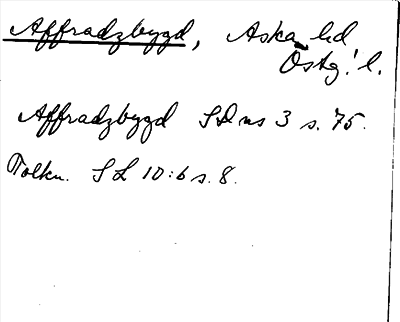 Affradzbygd, Aska hd
Östg. l.
Affradzbygd SD ns 3 s. 75.
Tolkn. SL 10:6 s. 8.